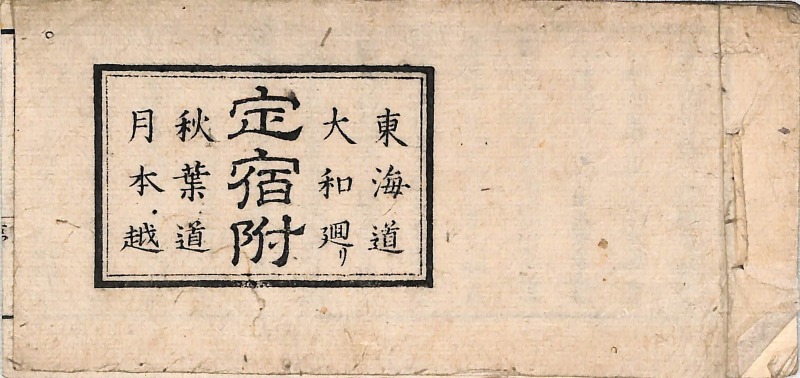 東海道
大和廻り
定宿附
秋葉道
月本越